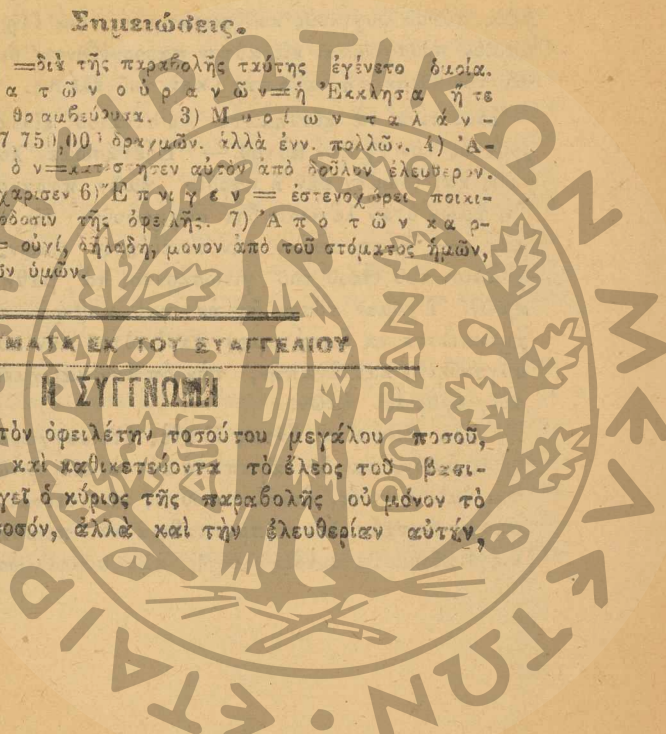 Σημειώσεις.
=διὰ τῆς παραβολῆς ταύτης ἐγένετο ὁμοία.
α τ ῶ ν ο ὐ ρ α ν ῶ ν=ἡ Ἐκκλησία ἥ τε
θριαμβεύουσα. 3) Μ υ ρ ί ω ν τ α λ ά ν -
δραχμῶν. ἀλλὰ ἐνν. πολλῶν. 4) Ἀ-
ὸ ν=κατέστησεν αὐτὸν ἀπὸ δοῦλον ἐλεύθερον.
χάρισεν 6) Ἔ π ν ι γ ε ν = ἐστενοχώρει ποικι-
όδοσιν τῆς ὀφειλῆς. 7) Ἀ π ὸ τ ῶ ν κ α ρ-
= οὐχί, δηλαδή, μόνον ἀπὸ τοῦ στόματος ἡμῶν,
ῶν ὑμῶν.
ΜΑΤΑ ΕΚ ΤΟΥ ΕΥΑΓΓΕΛΙΟΥ
Η ΣΥΓΓΝΩΜΗ
τὸν ὀφειλέτην τοσούτου μεγάλου ποσοῦ,
καὶ καθικετεύοντα τὸ ἔλεος τοῦ βασι-
γεῖ ὁ κύριος τῆς παραβολῆς οὐ μόνον τὸ
οσόν, ἀλλὰ καὶ τὴν ἐλευθερίαν αὐτήν,
ΕΤΑΙΡ ΚΥΠΡΩΤΙΚΩΝ ΜΕΛΕΤΩΝ